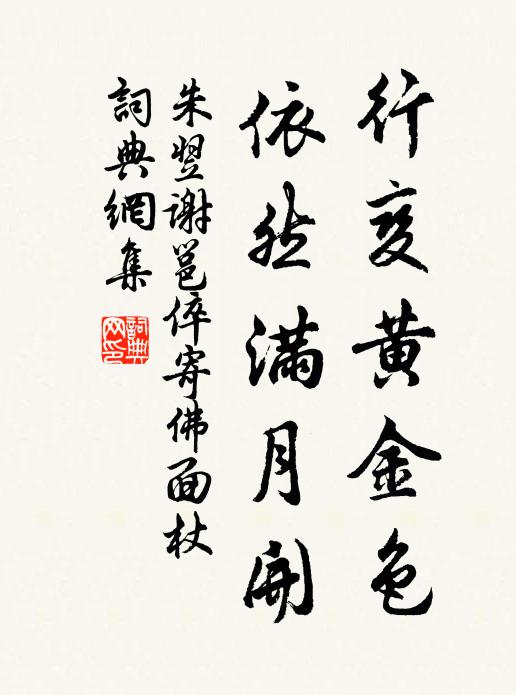 行变黄金色
依然满月開
朱翌謝邕倅寄佛面杖
詞典網集
詞典网印